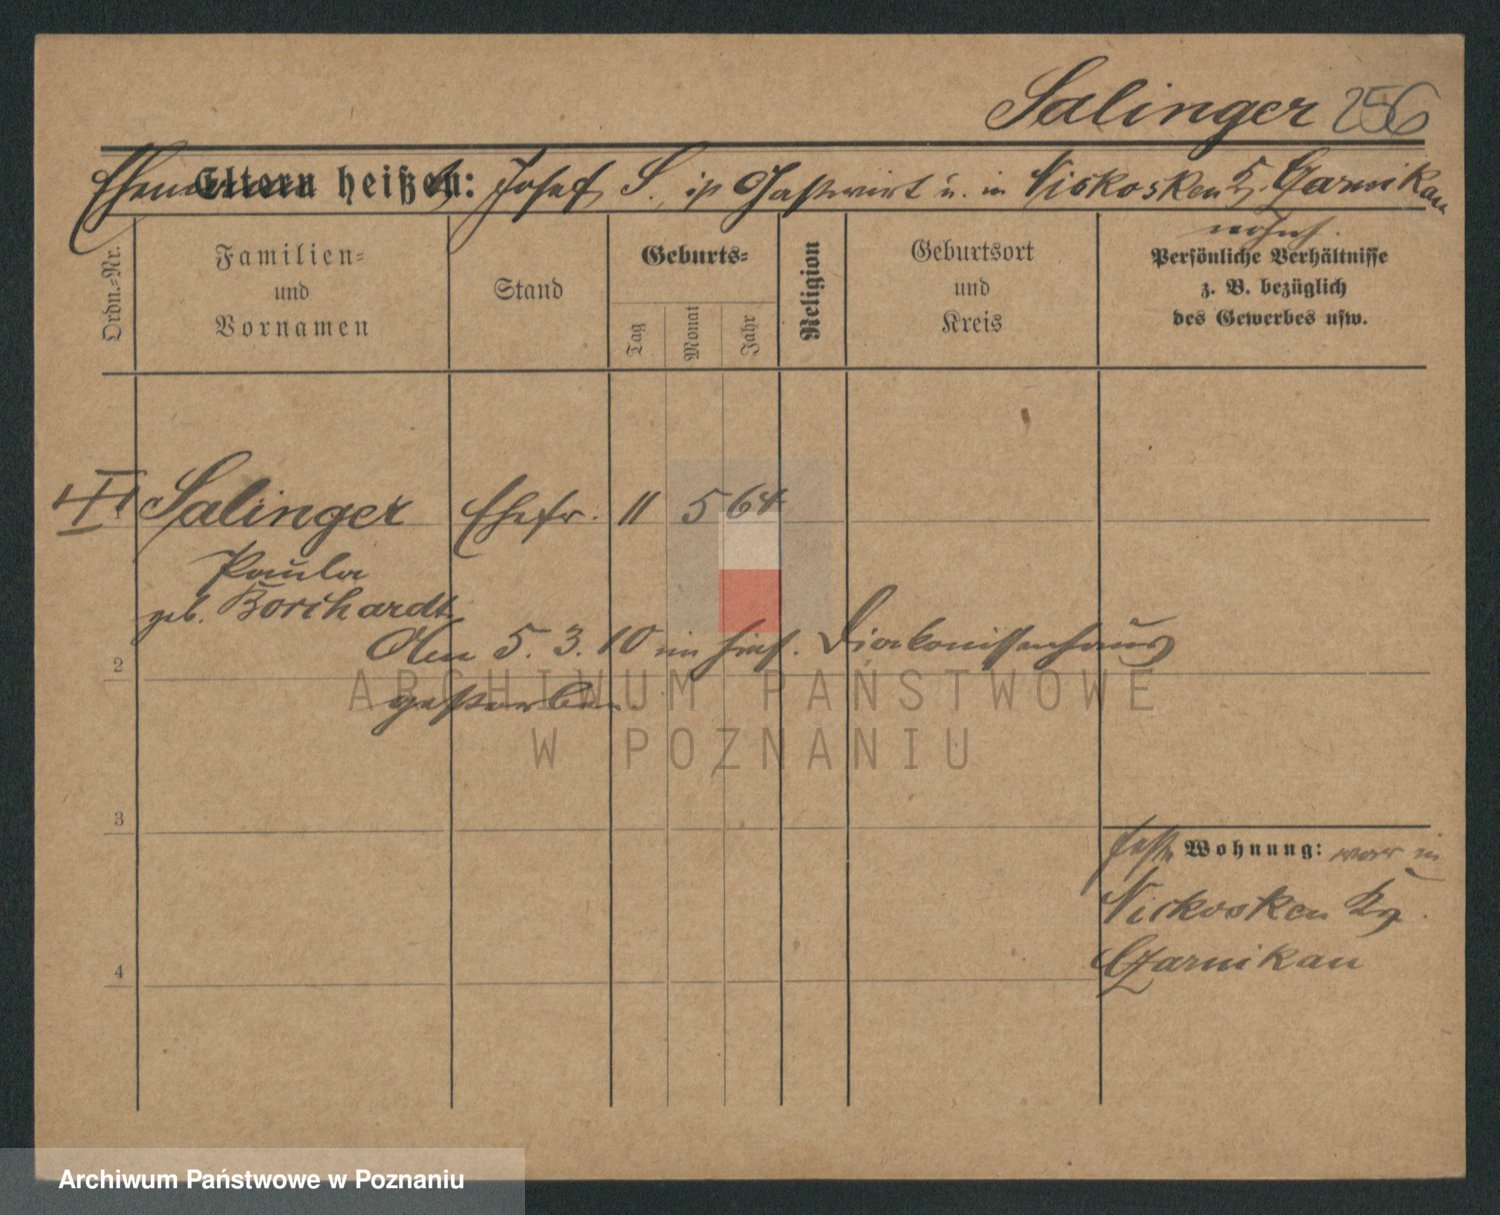 Salinger 256
Ehemann Eltern heißen: Josef S. ist Gastwirt u. in Nickosken K. Czarnikau
wohnh.
Ordn.-Nr.
Familien-
und
Vornamen
Stand
Geburts-
Tag
Monat
Jahr
Religion
Geburtsort
und
Kreis
Persönliche Verhältnisse
z. B. bezüglich
des Gewerbes usw.
Salinger Ehefr. 11 5 64
Paula
geb. Borchardt
Am 5. 3. 10 im hies. Diakonissenhaus
2
gestorben.
ARCHIWUM PAŃSTWOWE
W POZNANIU
3
feste Wohnung: war in
Nickosken Kr.
Czarnikau
4
Archiwum Państwowe w Poznaniu